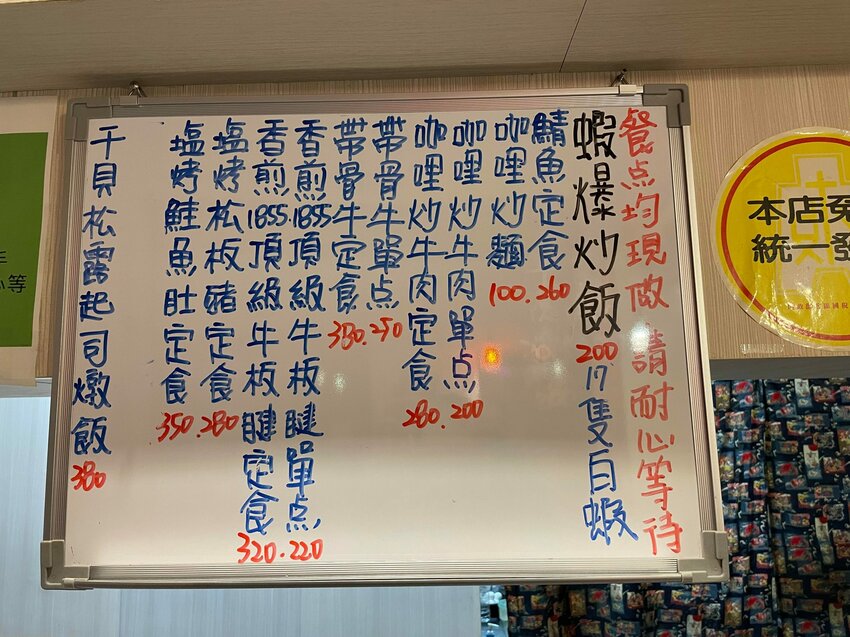 餐点均現做 請耐心等待
蝦爆炒飯 200 17隻白蝦
鯖魚定食 260
咖哩炒麵 100.
咖哩炒牛肉單点 200
咖哩炒牛肉定食 280.
帶骨牛單点 250
帶骨牛定食 380.
香煎1855頂級牛板腱單点 220
香煎1855.頂級牛板腱定食 320.
塩烤松板豬定食 280
塩烤鮭魚肚定食 350.
干貝松露起司燉飯 380
本店免
統一發
等